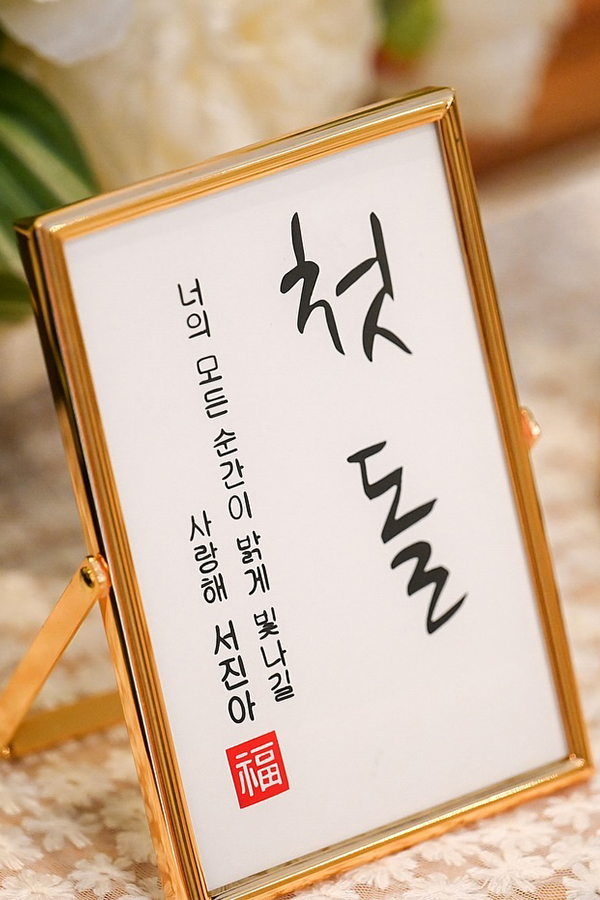 첫돌
너의 모든 순간이 밝게 빛나길
사랑해 서진아
福